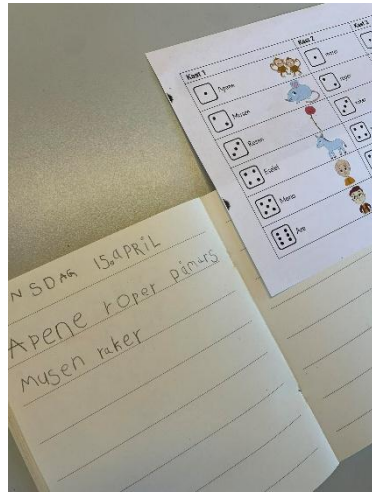 Kast 1
Apene
Musen
Rosen
Eselet
Mons
Are
Kast 2
roper
NSDAG 15.APRIL
APENE roper påmars
musen raker